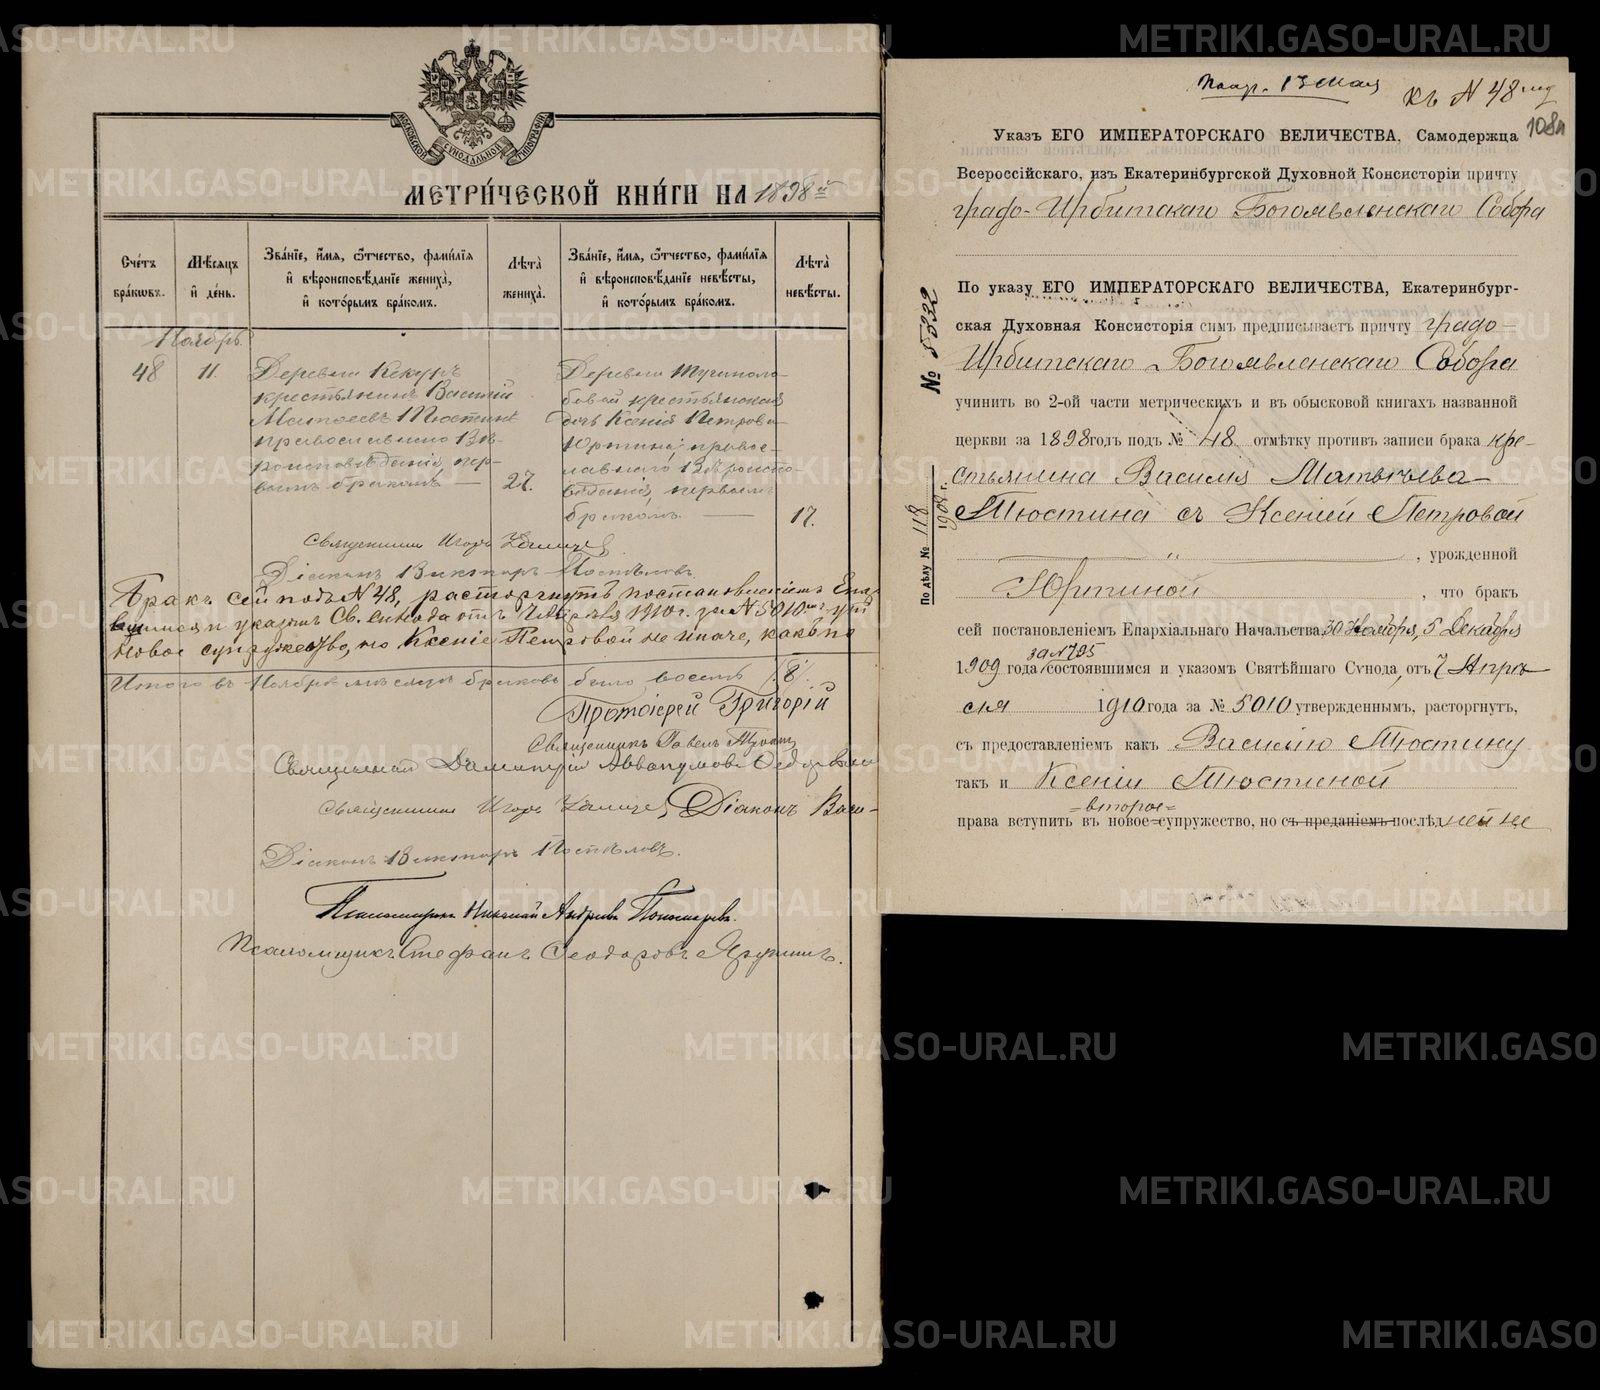 МОСКОВСКОЙ СѴНОДАЛЬНОЙ ТИПОГРАФІИ
МЕТРИ́ЧЕСКОЙ КНИ́ГИ НА 1898й
Сче́тъ бра́кѡвъ.
Мѣ́сяцъ и҆ де́нь.
Зва́нїе, и҆́мя, ѻ҆́тчество, фами́лїя и҆ вѣроисповѣ́данїе жениха̀, и҆ кото́рымъ бра́комъ.
Лѣ́та̀ жениха̀.
Зва́нїе, и҆́мя, ѻ҆́тчество, фами́лїя и҆ вѣроисповѣ́данїе невѣ́сты, и҆ кото́рымъ бра́комъ.
Лѣ́та̀ невѣ́сты.
Ноябрь
48
11.
Деревни Кекуръ
крестьянинъ Василій
Матѳеевъ Тюстинъ
православнаго вѣ-
роисповѣданія, пер-
вымъ бракомъ —
27.
Деревни
бовой крестьянская
дочь Ксенія Петрова
Юртина, право-
славнаго вѣроиспо-
вѣданія, первымъ
бракомъ. —
17.
Священникъ Игорь
Діаконъ Викторъ Поспѣловъ.
Бракъ сей подъ № 48, расторгнутъ постановленіемъ Епа
вшимся и указомъ Св. Синода отъ 7 Апрѣля 1910 г. за № 5010мъ ут
новое супружество, но Ксеніе Петровой не иначе, какъ по
Итого въ Ноябрѣ мѣсяцѣ браковъ было восемь /8/.
Протоіерей Григорій
Священникъ Павелъ
Священникъ Димитрій Аввакумовъ
Священникъ Игорь
Діаконъ Васи-
Діаконъ Викторъ Поспѣловъ.
Псаломщикъ Николай Андреевъ Пономаревъ.
Псаломщикъ Стефанъ Ѳеодоровъ Ярушинъ.
13 Мая
къ № 48
108а
Указъ ЕГО ИМПЕРАТОРСКАГО ВЕЛИЧЕСТВА, Самодержца
Всероссійскаго, изъ Екатеринбургской Духовной Консисторіи причту
градо-Ирбитскаго Богоявленскаго Собора
По указу ЕГО ИМПЕРАТОРСКАГО ВЕЛИЧЕСТВА, Екатеринбург-
ская Духовная Консисторія симъ предписываетъ причту градо-
Ирбитскаго Богоявленскаго Собора
учинить во 2-ой части метрическихъ и въ обысковой книгахъ названной
церкви за 1898 годъ подъ № 48 отмѣтку противъ записи брака кре-
стьянина Василія Матвѣева
Тюстина съ Ксеніей Петровой
, урожденной
Юртиной, что бракъ
сей постановленіемъ Епархіальнаго Начальства 30 Ноября, 5 Декабря
за № 795
1909 года состоявшимся и указомъ Святѣйшаго Сѵнода, отъ 7 Апрѣ-
ля 1910 года за № 5010 утвержденнымъ, расторгнутъ,
съ предоставленіемъ какъ Василію Тюстину
такъ и Ксеніи Тюстиной
=второе=
права вступить въ новое супружество, но съ преданіемъ послѣдней не
№ 5332
По дѣлу № 118
1908 г.
METRIKI.GASO-URAL.RU